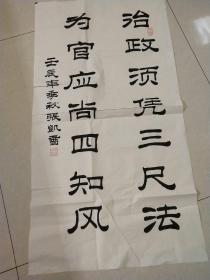 治政须凭三尺法
为官应尚四知风
壬辰年季秋张凯书